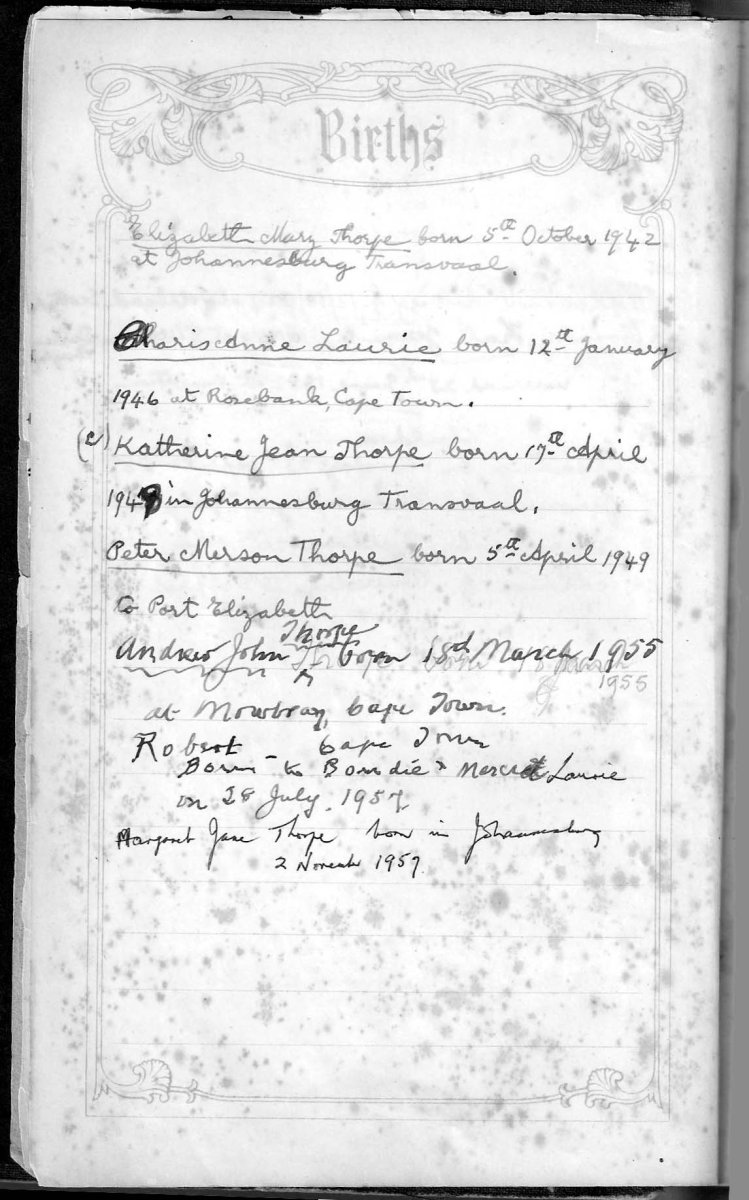 Births
Elizabeth Mary Thorpe born 5th October 1942
at Johannesburg Transvaal.
Charis Anne Laurie born 12th January
1946 at Rosebank, Cape Town.
(c) Katherine Jean Thorpe born 17th April
1947 in Johannesburg Transvaal.
Peter Merson Thorpe born 5th April 1949
Port Elizabeth
Thorpe
Andrew John born 18d March 1955
1955
at Mowbray, Cape Town.
Robert Cape Town
Born to Bourdie & Laurie
on 28 July, 1957
Margaret Jane Thorpe born in Johannesburg
2 November 1957